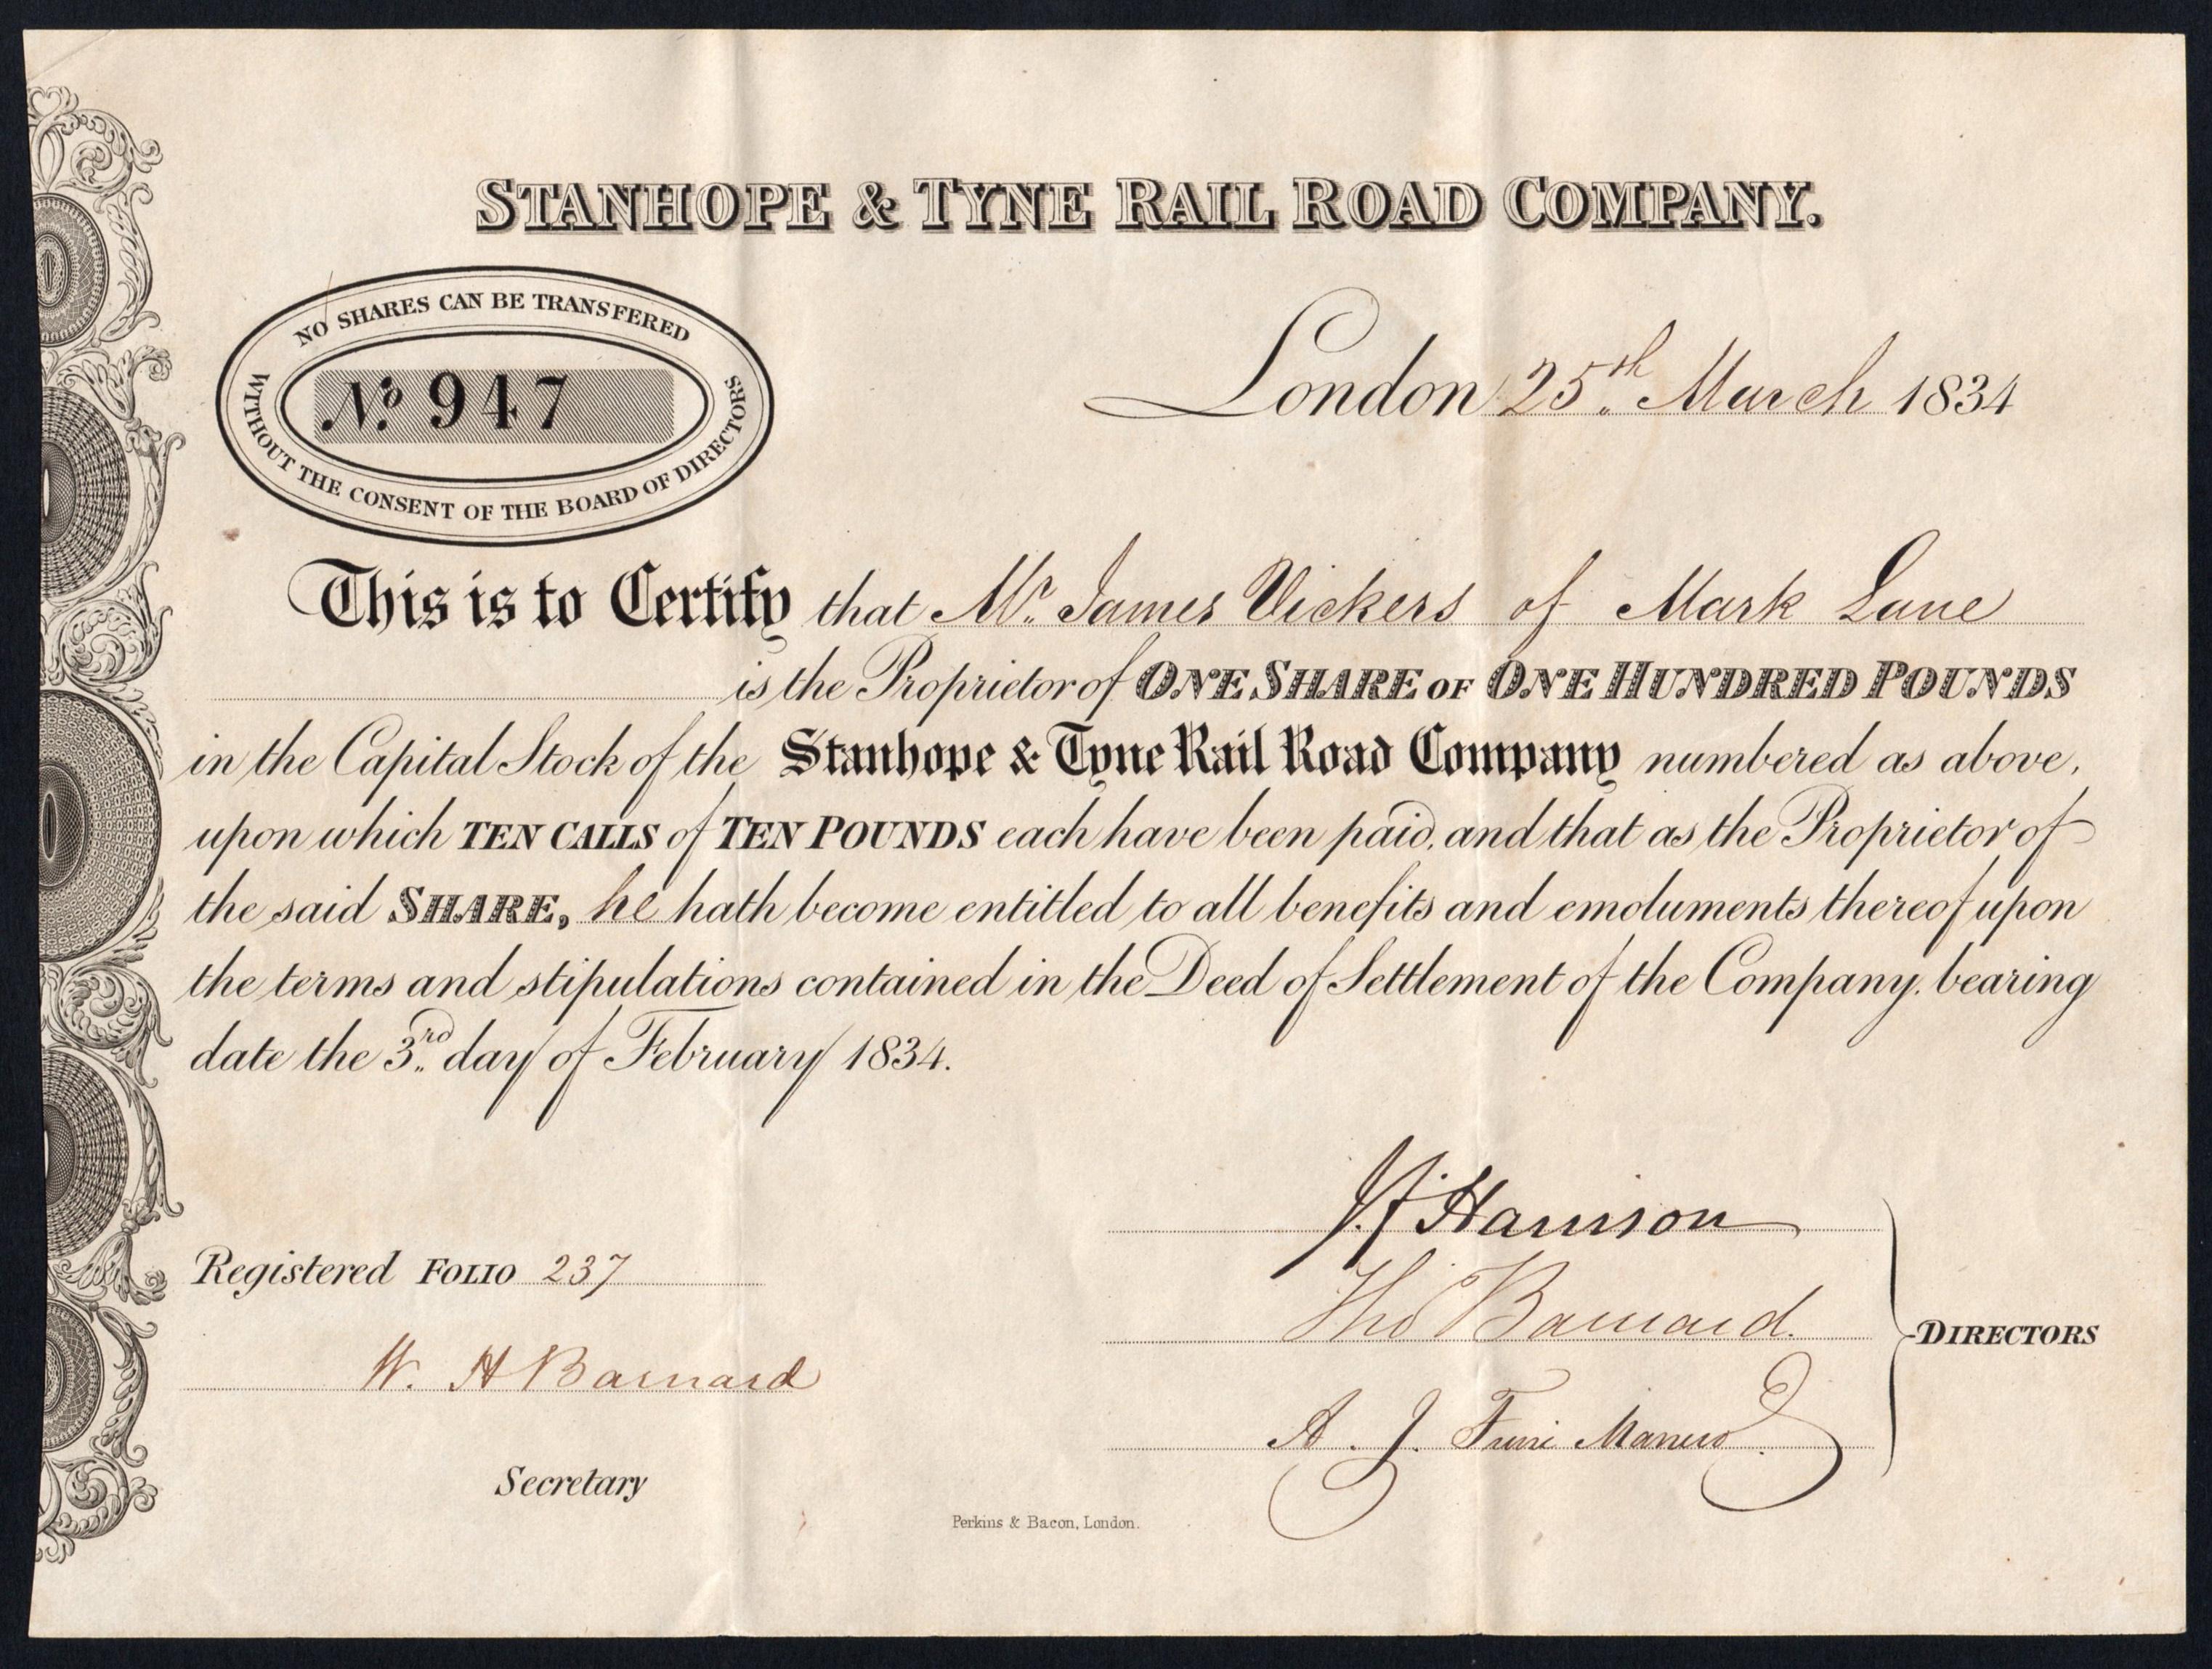 STANHOPE & TYNE RAIL ROAD COMPANY.
NO SHARES CAN BE TRANSFERED
WITHOUT THE CONSENT OF THE BOARD OF DIRECTORS
No. 947
London 25th March 1834
This is to Certify that Mr. James Vickers of Mark Lane
is the Proprietor of ONE SHARE OF ONE HUNDRED POUNDS
in the Capital Stock of the Stanhope & Tyne Rail Road Company numbered as above,
upon which TEN CALLS of TEN POUNDS each have been paid, and that as the Proprietor of
the said SHARE, he hath become entitled to all benefits and emoluments thereof upon
the terms and stipulations contained in the Deed of Settlement of the Company, bearing
date the 3rd day of February 1834.
Harrison
Registered FOLIO 237
Tho Barnard.
DIRECTORS
W. H Barnard
A. J.
Secretary
Perkins & Bacon, London.